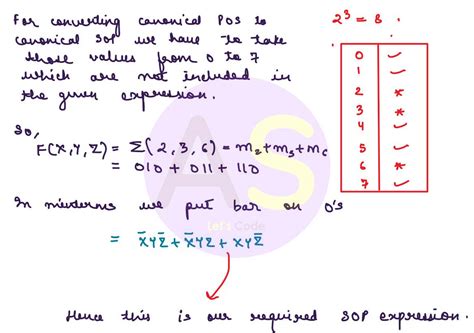 For converting canonical POS to
canonical SOP we have to take
those values from 0 to 7
which are not included in
the given expression.
2³ = 8.
0 ✓
1 ✓
2 *
3 *
4 ✓
5 ✓
6 *
7 ✓
So,
F(X,Y,Z) = Σ(2,3,6) = m₂+m₃+m₆
= 010 + 011 + 110
In minterms we put bar on 0's
= X̄YZ̄ + X̄YZ + XYZ̄
Hence this is our required SOP expression.
AS
Let's Code